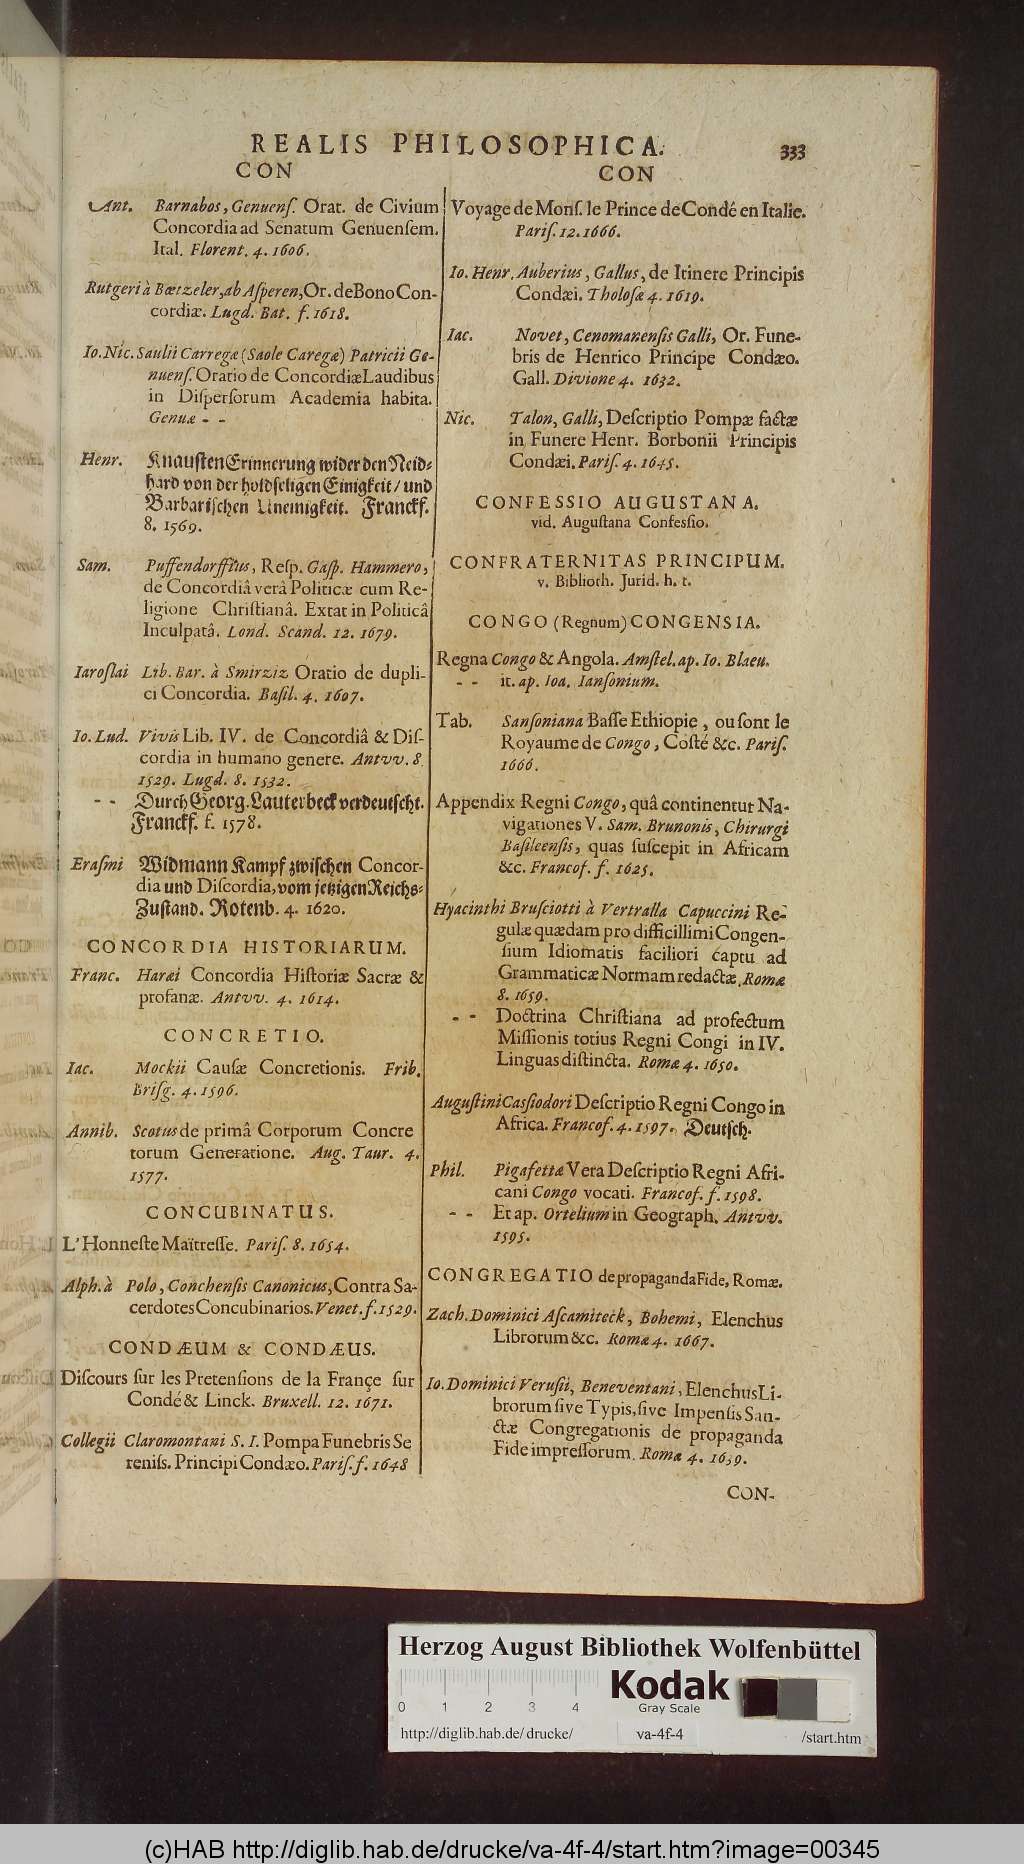 REALIS PHILOSOPHICA. 333
CON
Ant. Barnabos, Genuenſ. Orat. de Civium
Concordia ad Senatum Genuenſem.
Ital. Florent. 4. 1606.
Rutgeri à Bœtzeler, ab Aſperen, Or. de Bono Con-
cordiæ. Lugd. Bat. f. 1618.
Io. Nic. Saulii Carregæ (Saole Caregæ) Patricii Ge-
nuenſ. Oratio de Concordiæ Laudibus
in Diſperſorum Academia habita.
Genuæ - -
Henr. Knauſten Erinnerung wider den Neid-
hard von der holdſeligen Einigkeit / und
Barbariſchen Uneinigkeit. Franckf.
8. 1569.
Sam. Puffendorffius, Reſp. Gaſp. Hammero,
de Concordiâ verâ Politicæ cum Re-
ligione Chriſtianâ. Extat in Politicâ
Inculpatâ. Lond. Scand. 12. 1679.
Iaroſlai Lib. Bar. à Smirziz Oratio de dupli-
ci Concordia. Baſil. 4. 1607.
Io. Lud. Vivis Lib. IV. de Concordiâ & Diſ-
cordia in humano genere. Antvv. 8.
1529. Lugd. 8. 1532.
- - Durch Georg. Lauterbeck verdeutſcht.
Franckf. f. 1578.
Eraſmi Widmann Kampf zwiſchen Concor-
dia und Diſcordia, vom jetzigen Reichs-
Zuſtand. Rotenb. 4. 1620.
CONCORDIA HISTORIARUM.
Franc. Haræi Concordia Hiſtoriæ Sacræ &
profanæ. Antvv. 4. 1614.
CONCRETIO.
Iac. Mockii Cauſæ Concretionis. Frib.
Briſg. 4. 1596.
Annib. Scotus de primâ Corporum Concre
torum Generatione. Aug. Taur. 4.
1577.
CONCUBINATUS.
L'Honneſte Maïtreſſe. Pariſ. 8. 1654.
Alph. à Polo, Conchenſis Canonicus, Contra Sa-
cerdotes Concubinarios. Venet. f. 1529.
CONDÆUM & CONDÆUS.
Diſcours ſur les Pretenſions de la Françe ſur
Condé & Linck. Bruxell. 12. 1671.
Collegii Claromontani S. I. Pompa Funebris Se
reniſs. Principi Condæo. Pariſ. f. 1648
CON
Voyage de Monſ. le Prince de Condé en Italie.
Pariſ. 12. 1666.
Io. Henr. Auberius, Gallus, de Itinere Principis
Condæi. Tholoſæ 4. 1619.
Iac. Novet, Cenomanenſis Galli, Or. Fune-
bris de Henrico Principe Condæo.
Gall. Divione 4. 1632.
Nic. Talon, Galli, Deſcriptio Pompæ factæ
in Funere Henr. Borbonii Principis
Condæi. Pariſ. 4. 1645.
CONFESSIO AUGUSTANA.
vid. Auguſtana Confeſſio.
CONFRATERNITAS PRINCIPUM.
v. Biblioth. Jurid. h. t.
CONGO (Regnum) CONGENSIA.
Regna Congo & Angola. Amſtel. ap. Io. Blaeu.
- - it. ap. Ioa. Ianſonium.
Tab. Sanſoniana Baſſe Ethiopie, ou ſont le
Royaume de Congo, Coſté &c. Pariſ.
1666.
Appendix Regni Congo, quâ continentur Na-
vigationes V. Sam. Brunonis, Chirurgi
Baſileenſis, quas ſuſcepit in Africam
&c. Francof. f. 1625.
Hyacinthi Bruſciotti à Vertralla Capuccini Re-
gulæ quædam pro difficillimi Congen-
ſium Idiomatis faciliori captu ad
Grammaticæ Normam redactæ. Romæ
8. 1659.
- - Doctrina Chriſtiana ad profectum
Miſſionis totius Regni Congi in IV.
Linguas diſtincta. Romæ 4. 1650.
Auguſtini Caſſiodori Deſcriptio Regni Congo in
Africa. Francof. 4. 1597. Deutſch.
Phil. Pigafettæ Vera Deſcriptio Regni Afri-
cani Congo vocati. Francof. f. 1598.
- - Et ap. Ortelium in Geograph. Antvv.
1595.
CONGREGATIO de propaganda Fide, Romæ.
Zach. Dominici Aſcamiteck, Bohemi, Elenchus
Librorum &c. Romæ 4. 1667.
Io. Dominici Veruſii, Beneventani, Elenchus Li-
brorum ſive Typis, ſive Impenſis San-
ctæ Congregationis de propaganda
Fide impreſſorum. Romæ 4. 1639.
CON-
Herzog August Bibliothek Wolfenbüttel
0 1 2 3 4
Kodak
Gray Scale
http://diglib.hab.de/drucke/ va-4f-4 /start.htm
(c)HAB http://diglib.hab.de/drucke/va-4f-4/start.htm?image=00345